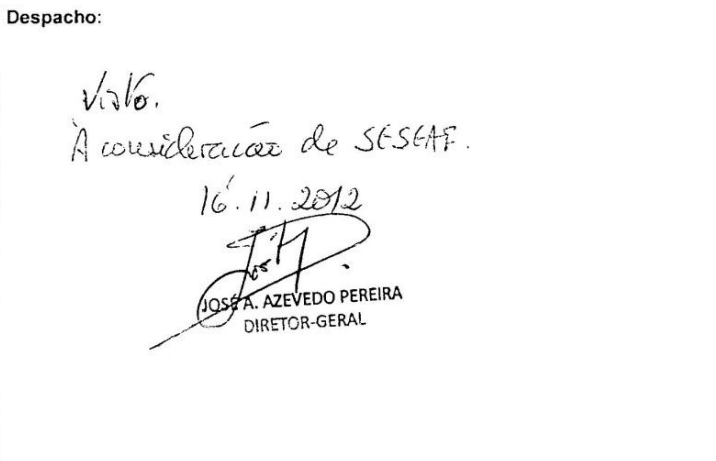 Despacho:
Visto.
À consideração de SESEAF.
16.11.2012
JOSÉ A. AZEVEDO PEREIRA
DIRETOR-GERAL